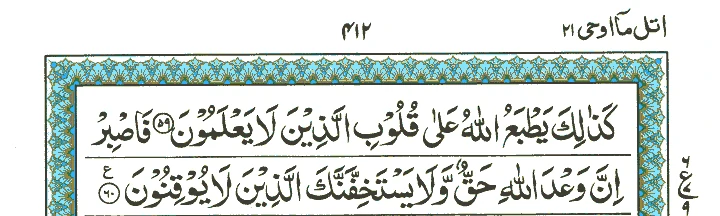 اتل مآ اوحی ۲۱
۴۱۲
كَذٰلِكَ يَطْبَعُ اللّٰهُ عَلٰى قُلُوْبِ الَّذِيْنَ لَا يَعْلَمُوْنَ ۝۵۹ فَاصْبِرْ
اِنَّ وَعْدَ اللّٰهِ حَقٌّ وَّلَا يَسْتَخِفَّنَّكَ الَّذِيْنَ لَا يُوْقِنُوْنَ ۝۶۰ ع
۶
ع
۷
۹